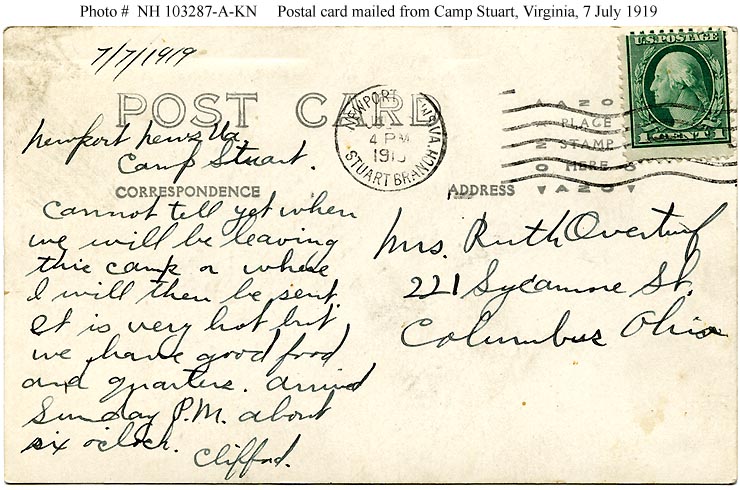 Photo # NH 103287-A-KN Postal card mailed from Camp Stuart, Virginia, 7 July 1919
7/7/1919
POST CARD
Newport News Va
Camp Stuart.
CORRESPONDENCE
Cannot tell yet when
we will be leaving
this camp or where
I will then be sent.
It is very hot but
we have good food
and quarters. arrived
Sunday P.M. about
six o'clock.
Clifford.
NEWPORT NEWS VA.
4 PM
STUART BRANCH
U.S. POSTAGE
1 CENT 1
AZO
PLACE
STAMP
HERE
AZO
ADDRESS
Mrs. Ruth Overturf
221 Sycamore St.
Columbus Ohio